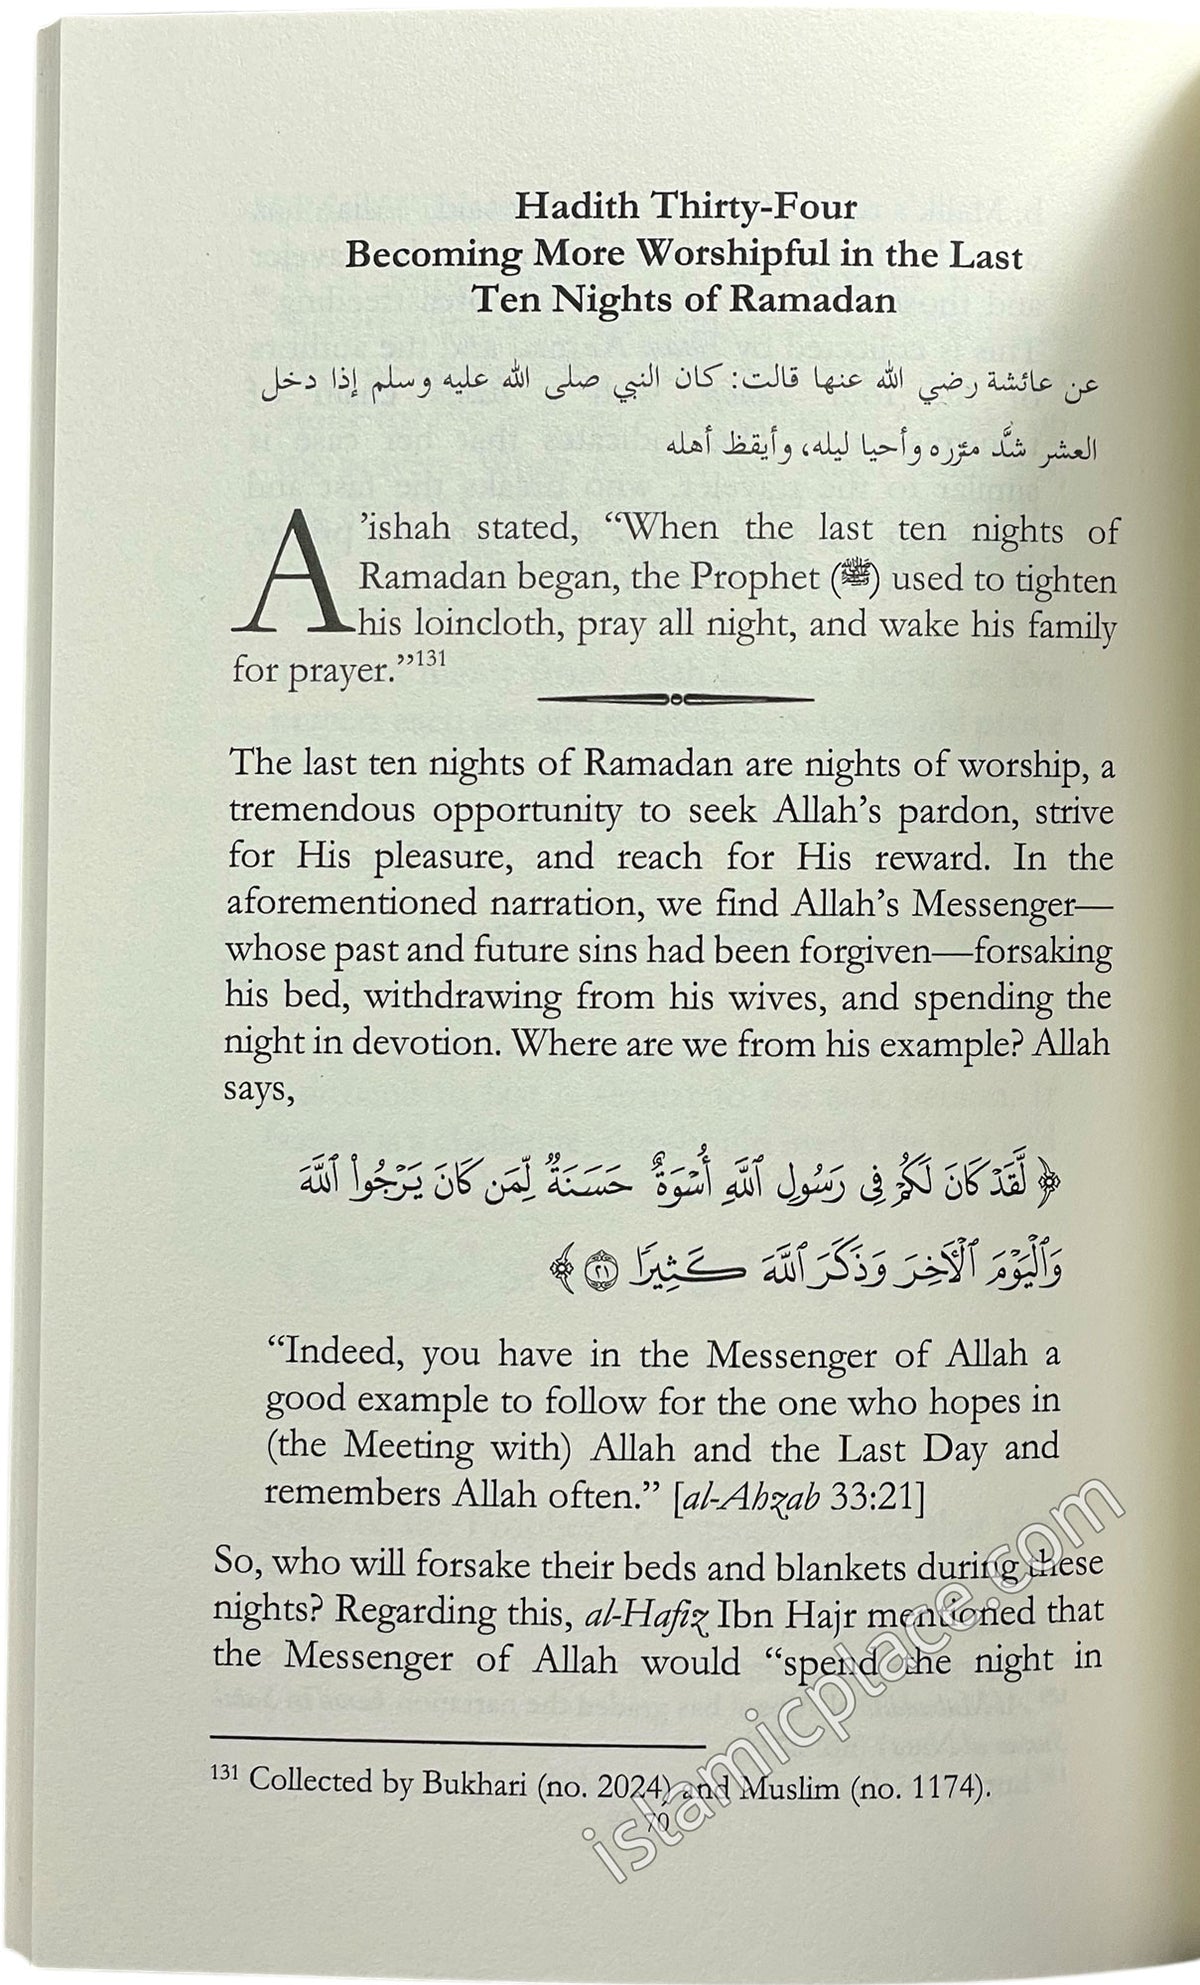 Hadith Thirty-Four
Becoming More Worshipful in the Last
Ten Nights of Ramadan
عن عائشة رضي الله عنها قالت: كان النبي صلى الله عليه وسلم إذا دخل
العشر شدَّ مئزره وأحيا ليله، وأيقظ أهله
A’ishah stated, “When the last ten nights of
Ramadan began, the Prophet (ﷺ) used to tighten
his loincloth, pray all night, and wake his family
for prayer.”131
The last ten nights of Ramadan are nights of worship, a
tremendous opportunity to seek Allah’s pardon, strive
for His pleasure, and reach for His reward. In the
aforementioned narration, we find Allah’s Messenger—
whose past and future sins had been forgiven—forsaking
his bed, withdrawing from his wives, and spending the
night in devotion. Where are we from his example? Allah
says,
﴿ لَّقَدْ كَانَ لَكُمْ فِى رَسُولِ ٱللَّهِ أُسْوَةٌ حَسَنَةٌ لِّمَن كَانَ يَرْجُوا۟ ٱللَّهَ
وَٱلْيَوْمَ ٱلْـَٔاخِرَ وَذَكَرَ ٱللَّهَ كَثِيرًا ٢١ ﴾
“Indeed, you have in the Messenger of Allah a
good example to follow for the one who hopes in
(the Meeting with) Allah and the Last Day and
remembers Allah often.” [al-Ahzab 33:21]
So, who will forsake their beds and blankets during these
nights? Regarding this, al-Hafiz Ibn Hajr mentioned that
the Messenger of Allah would “spend the night in
131 Collected by Bukhari (no. 2024) and Muslim (no. 1174).
70
islamicplace.com